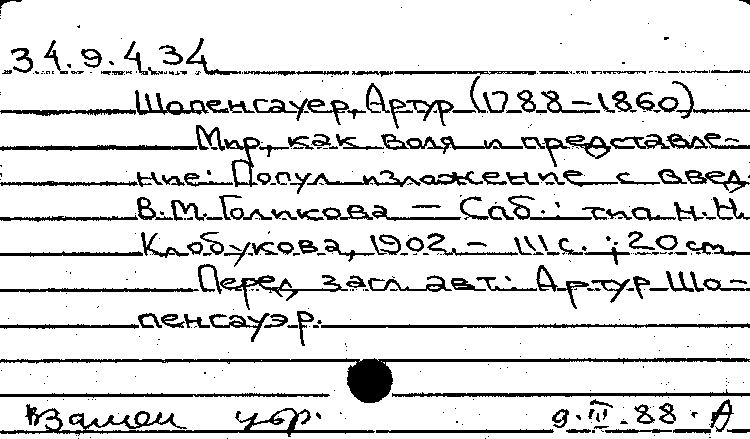 34.9.4.34
Шопенгауер, Артур (1788-1860)
Мир, как воля и представле-
ние: Попул изложение с введ
В.М. Голикова — Спб.: тип Н.Н.
Клобукова, 1902. - 111 с.; 20 cm
Перед загл. авт.: Артур Шо-
пенгауэр.
Взамен убр. 9.III.88. А